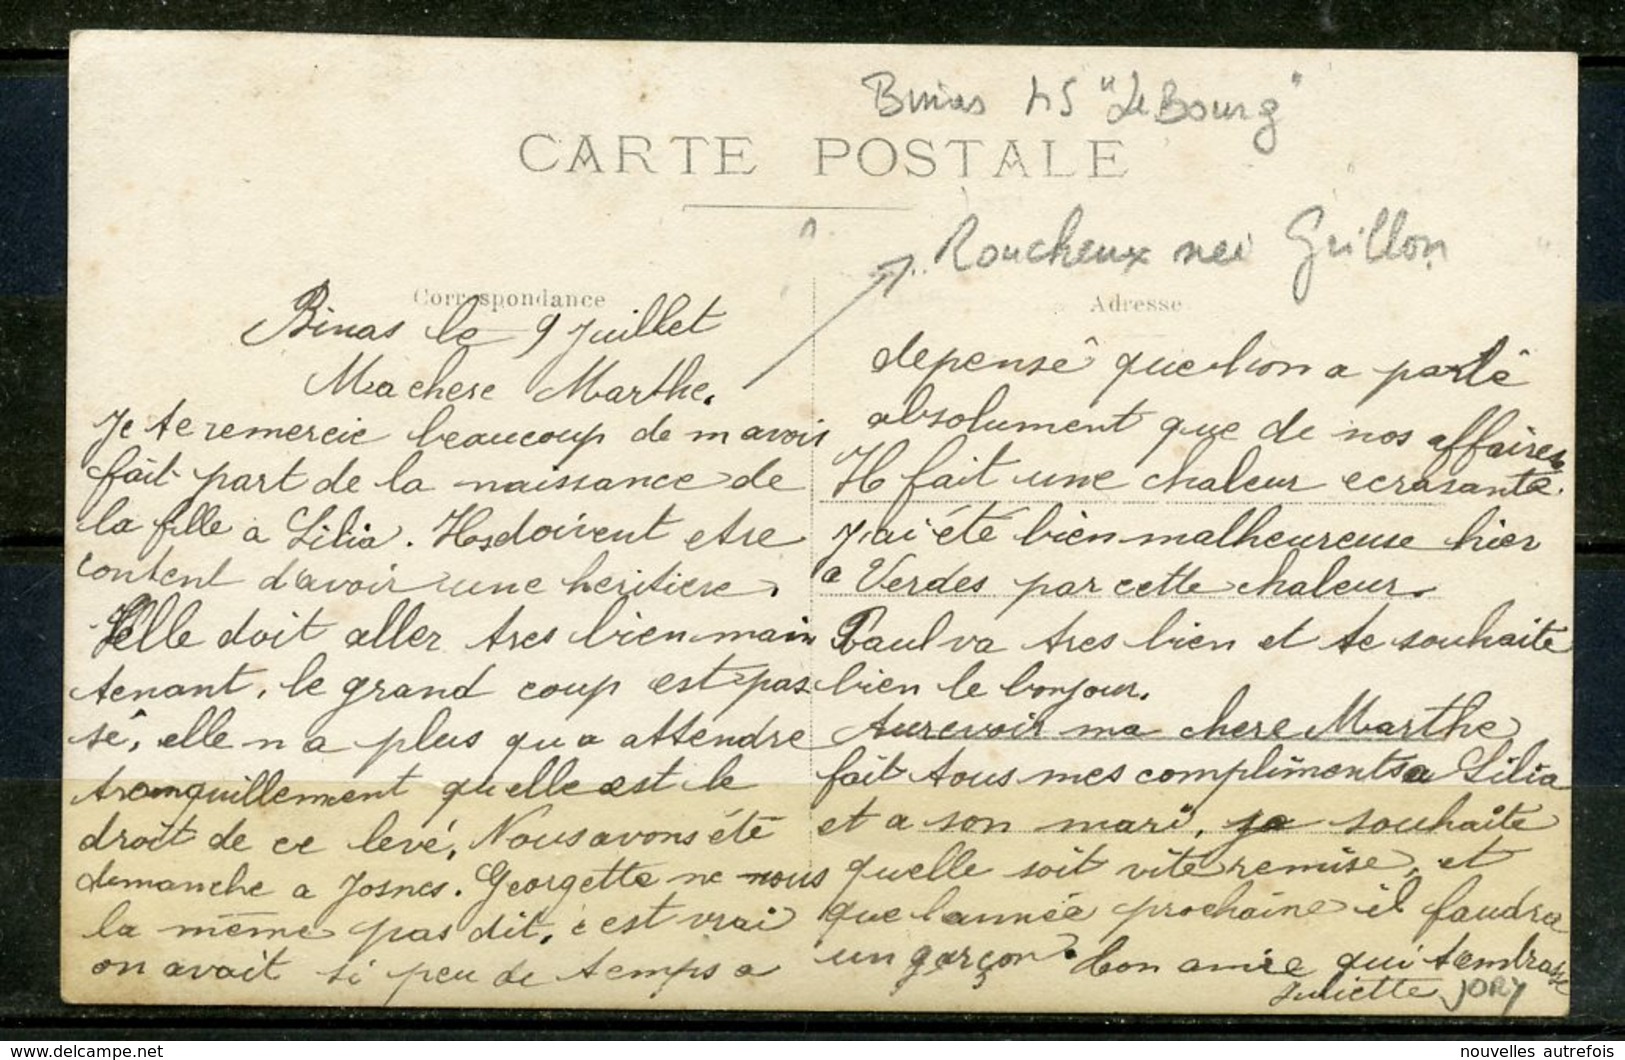 Binas 45 "Le Bourg"
CARTE POSTALE
Roucheux née Grillon
Correspondance
Binas le 9 Juillet
Ma chere Marthe.
Je te remercie beaucoup de m avoir
fait part de la naissance de
la fille a Lilia. Ils doivent etre
content d'avoir une heritiere.
Elle doit aller tres bien main
tenant, le grand coup est pas
sé, elle n a plus qu a attendre
tranquillement quelle est le
droit de ce levé, Nous avons été
dimanche a Josnes. Georgette ne nous
la même pas dit, c est vrai
on avait si peu de temps a
Adresse
depensé que lion a parlé
absolument que de nos affaires.
Il fait une chaleur ecrasante.
J,ai été bien malheureuse hier
a Verdes par cette chaleur.
Paul va tres bien et te souhaite
bien le bonjour.
Aurevoir ma chere Marthe
fait tous mes compliments a Lilia
et a son mari, je souhaite
quelle soit vite remise, et
que l année prochaine il faudra
un garçon. ton amie qui t embrasse
Juliette JORY
nouvelles autrefois